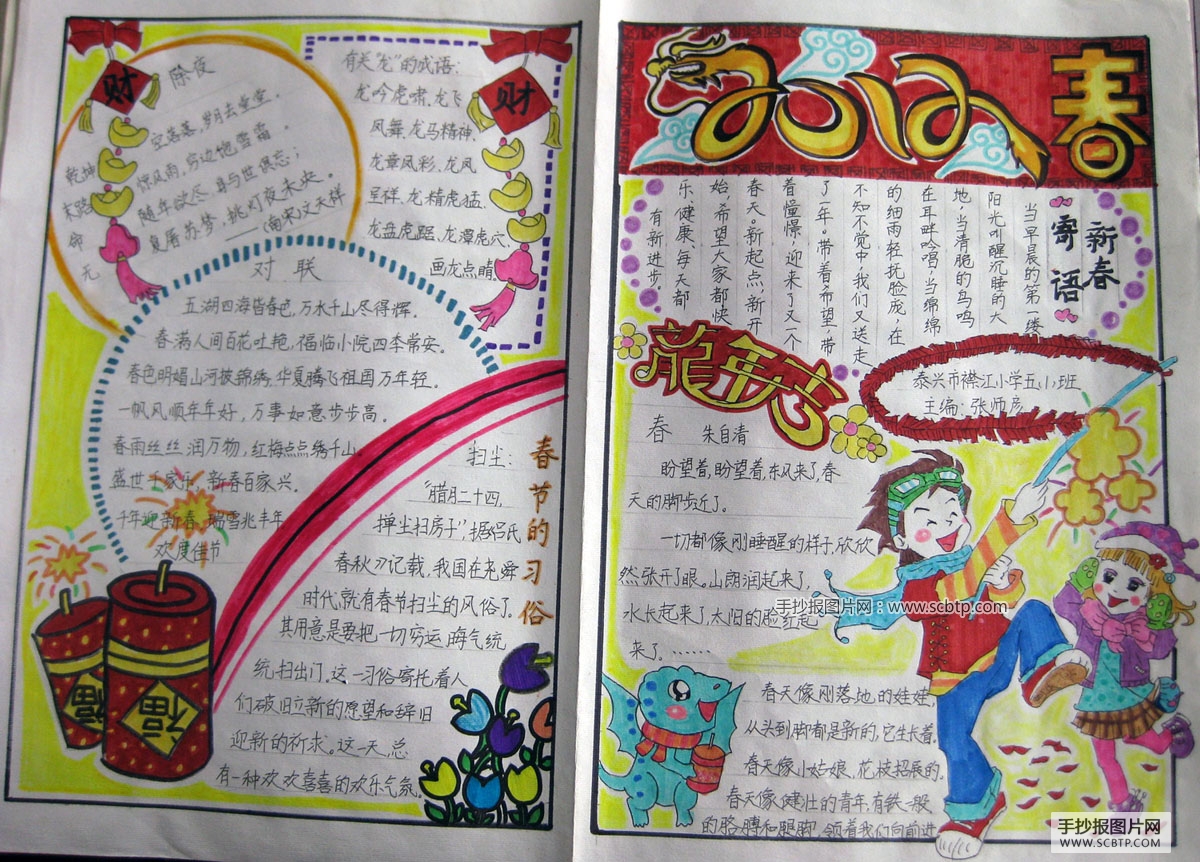 财
除夜
空荡荡,岁月去堂堂.
乾坤
惊风雨,穷边饱雪霜.
末路
随年欲尽,身与世俱忘;
命
复屠苏梦,挑灯夜未央.
无
——(南宋)文天祥
有关“龙”的成语:
龙吟虎啸、龙飞
凤舞、龙马精神、
龙章凤彩、龙凤
呈样、龙精虎猛、
龙盘虎踞、龙潭虎穴、
画龙点睛.
财
对联
五湖四海皆春色,万水千山尽得辉.
春满人间百花吐艳,福临小院四季常安.
春色明媚山河披锦绣,华夏腾飞祖国万年轻.
一帆风顺年年好,万事如意步步高.
春雨丝丝润万物,红梅点点绣千山.
盛世千家乐,新春百家兴.
千年迎新春,瑞雪兆丰年.
欢度佳节
福
福
春节的习俗
扫尘:
“腊月二十四,
掸尘扫房子”,据《吕氏
春秋》记载,我国在尧舜
时代就有春节扫尘的风俗了.
其用意是要把一切穷运、晦气统
统扫出门.这一习俗寄托着人
们破旧立新的愿望和辞旧
迎新的祈求.这一天,总
有一种欢欢喜喜的欢乐气氛.
2012
春
新春
寄语
当早晨的第一缕
阳光叫醒沉睡的大
地,当清脆的鸟鸣
在耳畔吟唱,当绵绵
的细雨轻抚脸庞,在
不知不觉中,我们又送走
了一年.带着希望,带
着憧憬,迎来了又一个
春天.新起点,新开
始,希望大家都快
乐、健康、每天都
有新进步.
龍年吉
泰兴市襟江小学五(1)班
主编:张师彦
春 朱自清
盼望着,盼望着,东风来了,春
天的脚步近了.
一切都像刚睡醒的样子,欣欣
然张开了眼.山朗润起来了,
水长起来了,太阳的脸红起
来了.……
春天像刚落地的娃娃,
从头到脚都是新的,它生长着.
春天像小姑娘,花枝招展的.
春天像健壮的青年,有铁一般
的胳膊和腿脚,领着我们向前进
手抄报图片网:www.scbtp.com
手抄报图片网
WWW.SCBTP.COM